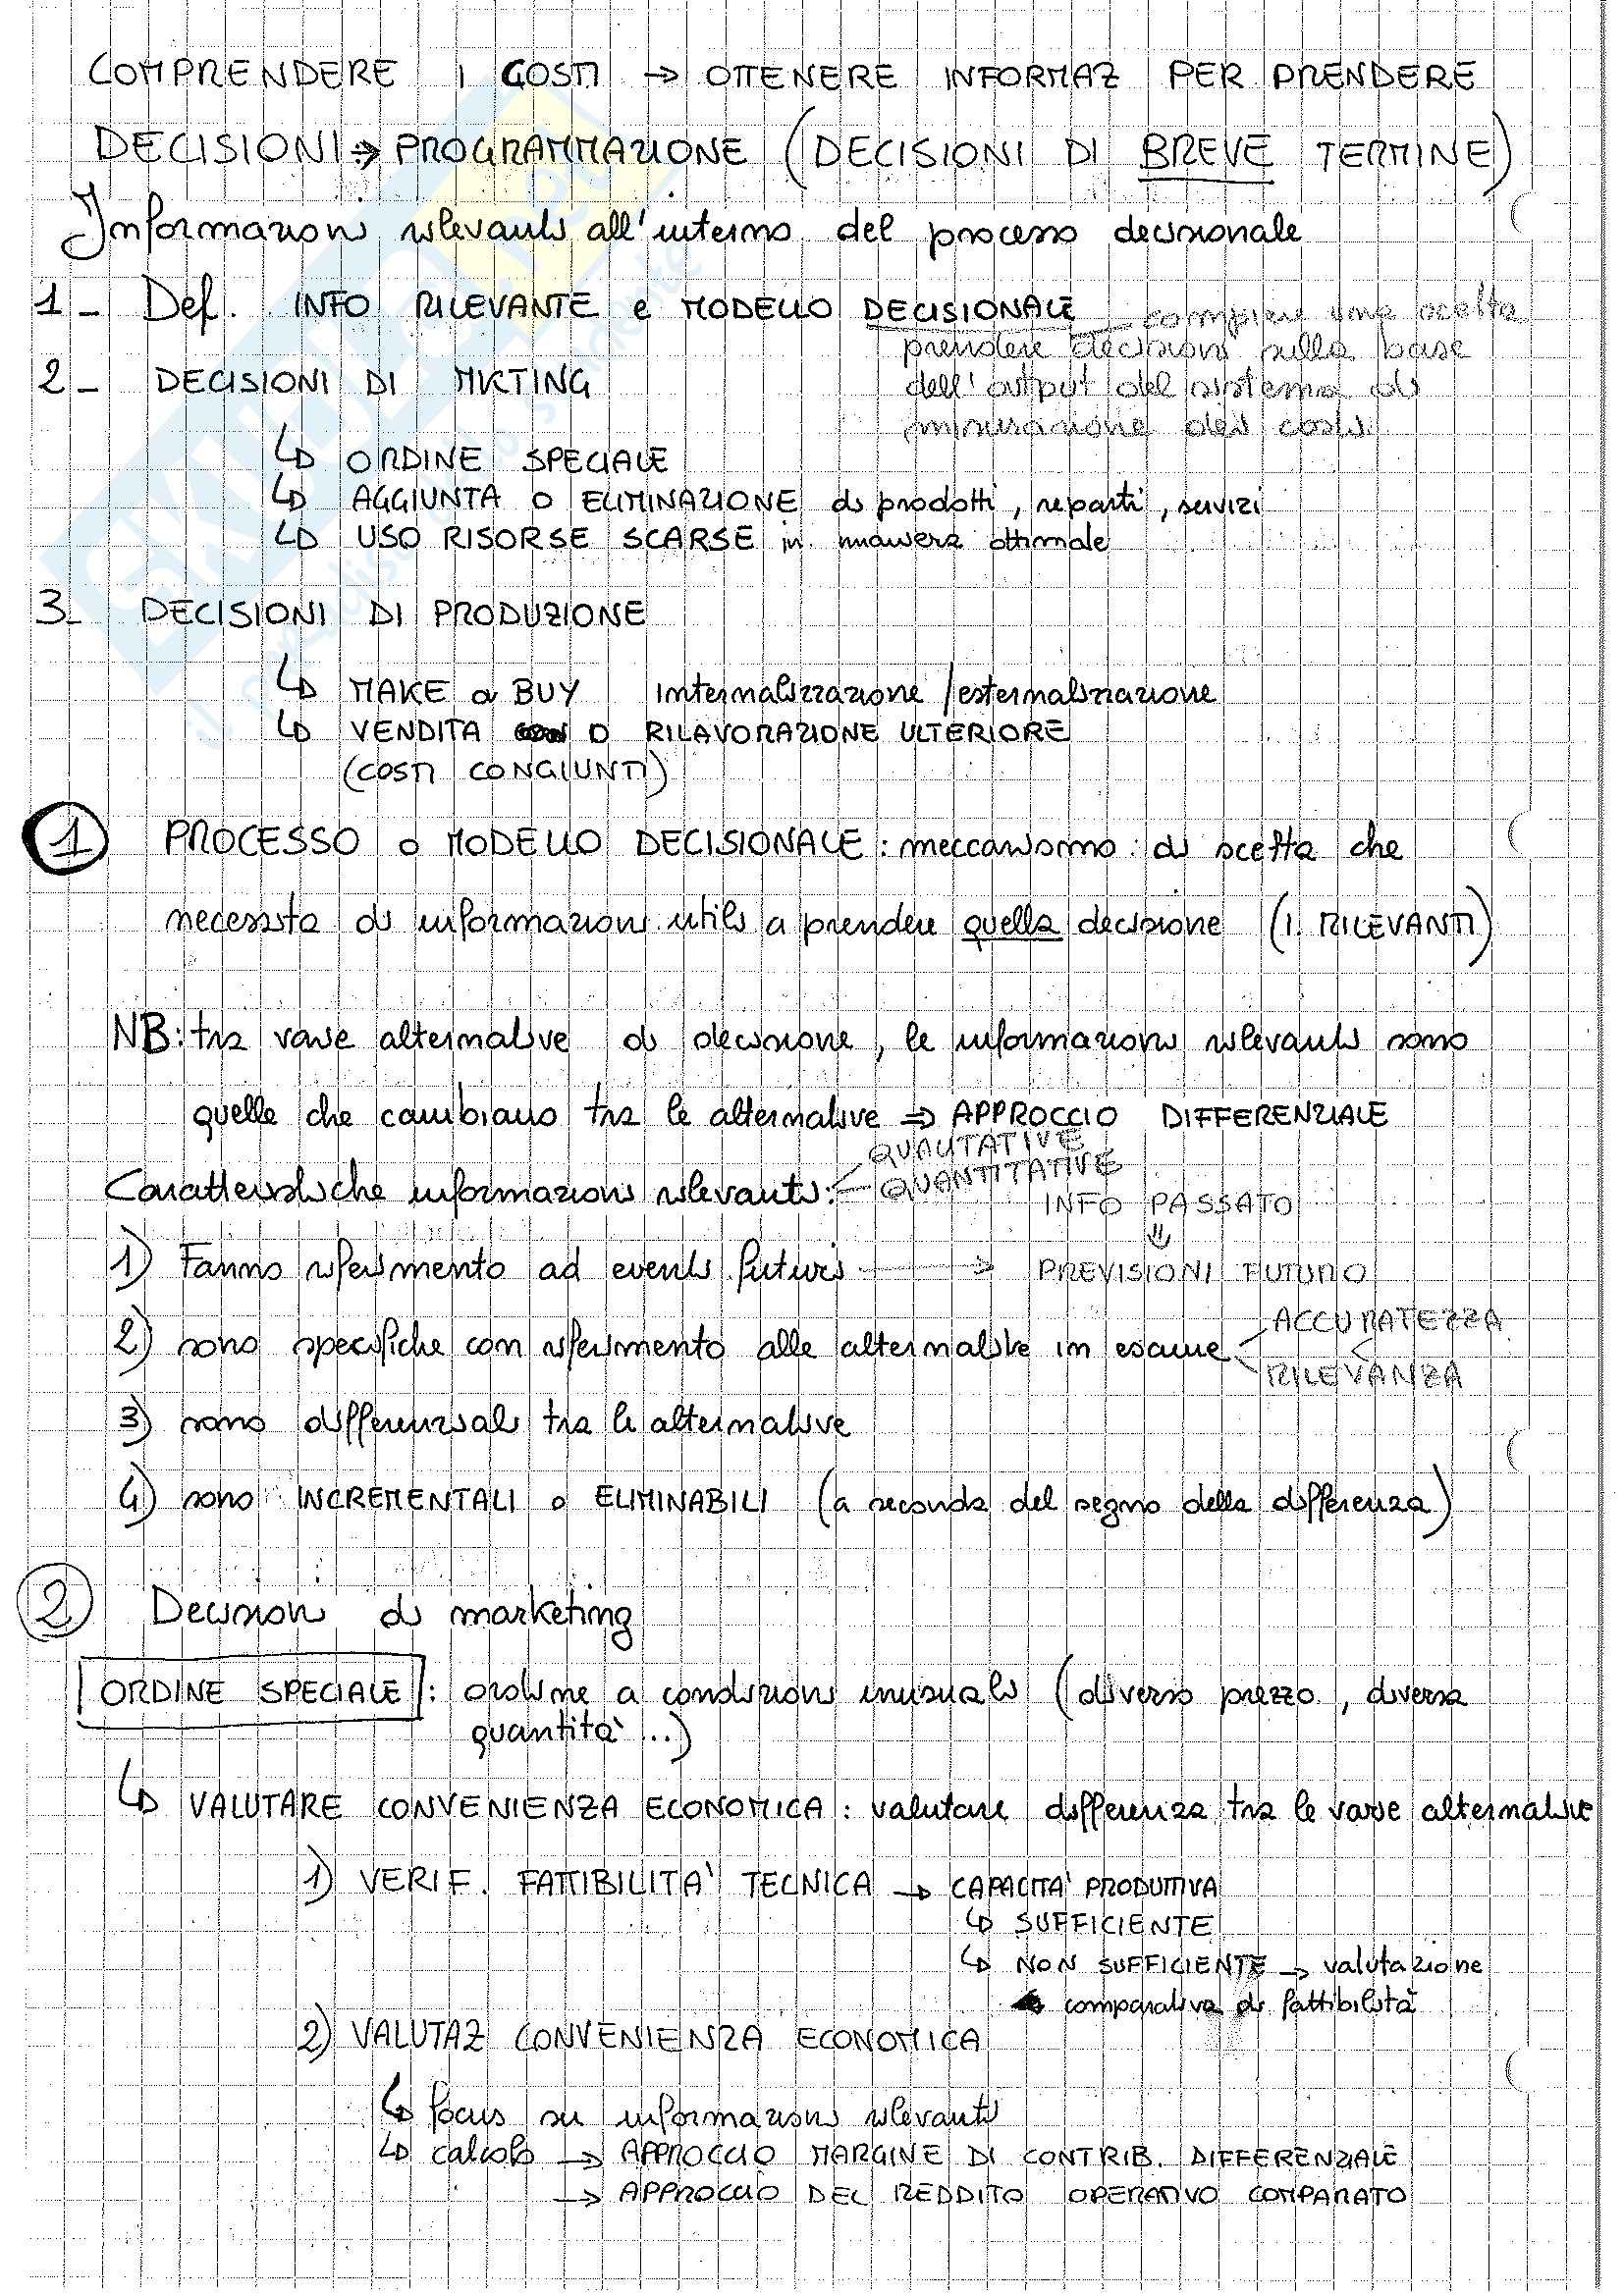 COMPRENDERE I COSTI → OTTENERE INFORMAZ PER PRENDERE
DECISIONI ⇒ PROGRAMMAZIONE (DECISIONI DI BREVE TERMINE)
Informazioni rilevanti all'interno del processo decisionale
1- Def. INFO RILEVANTE e MODELLO DECISIONALE compiere una scelta
prendere decisioni sulla base
2- DECISIONI DI MKTING dell'output del sistema di
misurazione dei costi
↳ ORDINE SPECIALE
↳ AGGIUNTA O ELIMINAZIONE di prodotti, reparti, servizi
↳ USO RISORSE SCARSE in maniera ottimale
3- DECISIONI DI PRODUZIONE
↳ MAKE or BUY internalizzazione/esternalizzazione
↳ VENDITA O RILAVORAZIONE ULTERIORE
(COSTI CONGIUNTI)
1 PROCESSO o MODELLO DECISIONALE: meccanismo di scelta che
necessita di informazioni utili a prendere quella decisione (I. RILEVANTI)
NB: tra varie alternative di decisione, le informazioni rilevanti sono
quelle che cambiano tra le alternative ⇒ APPROCCIO DIFFERENZIALE
QUALITATIVE
Caratteristiche informazioni rilevanti: QUANTITATIVE
INFO PASSATO
⇓
1) Fanno riferimento ad eventi futuri → PREVISIONI FUTURO
ACCURATEZZA
2) sono specifiche con riferimento alle alternative in esame <
RILEVANZA
3) sono differenziali tra le alternative
4) sono INCREMENTALI o ELIMINABILI (a seconda del segno della differenza)
2 Decisioni di marketing
ORDINE SPECIALE: ordine a condizioni inusuali (diverso prezzo, diversa
quantità ...)
↳ VALUTARE CONVENIENZA ECONOMICA: valutare differenza tra le varie alternative
1) VERIF. FATTIBILITA' TECNICA → CAPACITA' PRODUTTIVA
↳ SUFFICIENTE
↳ NON SUFFICIENTE → valutazione
comparativa di fattibilità
2) VALUTAZ CONVENIENZA ECONOMICA
↳ focus su informazioni rilevanti
↳ calcolo → APPROCCIO MARGINE DI CONTRIB. DIFFERENZIALE
→ APPROCCIO DEL REDDITO OPERATIVO COMPARATO